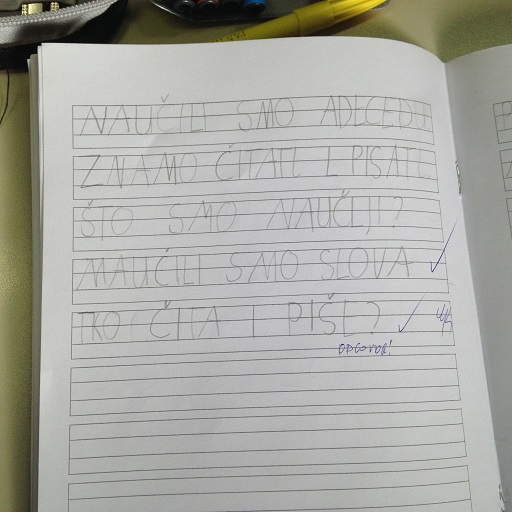 NAUČILI SMO ABECEDU
ZNAMO ČITATI I PISATI.
ŠTO SMO NAUČILI?
NAUČILI SMO SLOVA
TKO ČITA I PIŠE?
ODGOVORI!